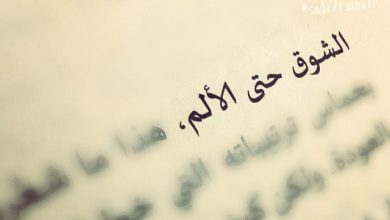 @sade7talbatt
الشوق حتى الألم، هذا ما شعر
بحماس ترتيباته التي خطط
العودة. ولكن